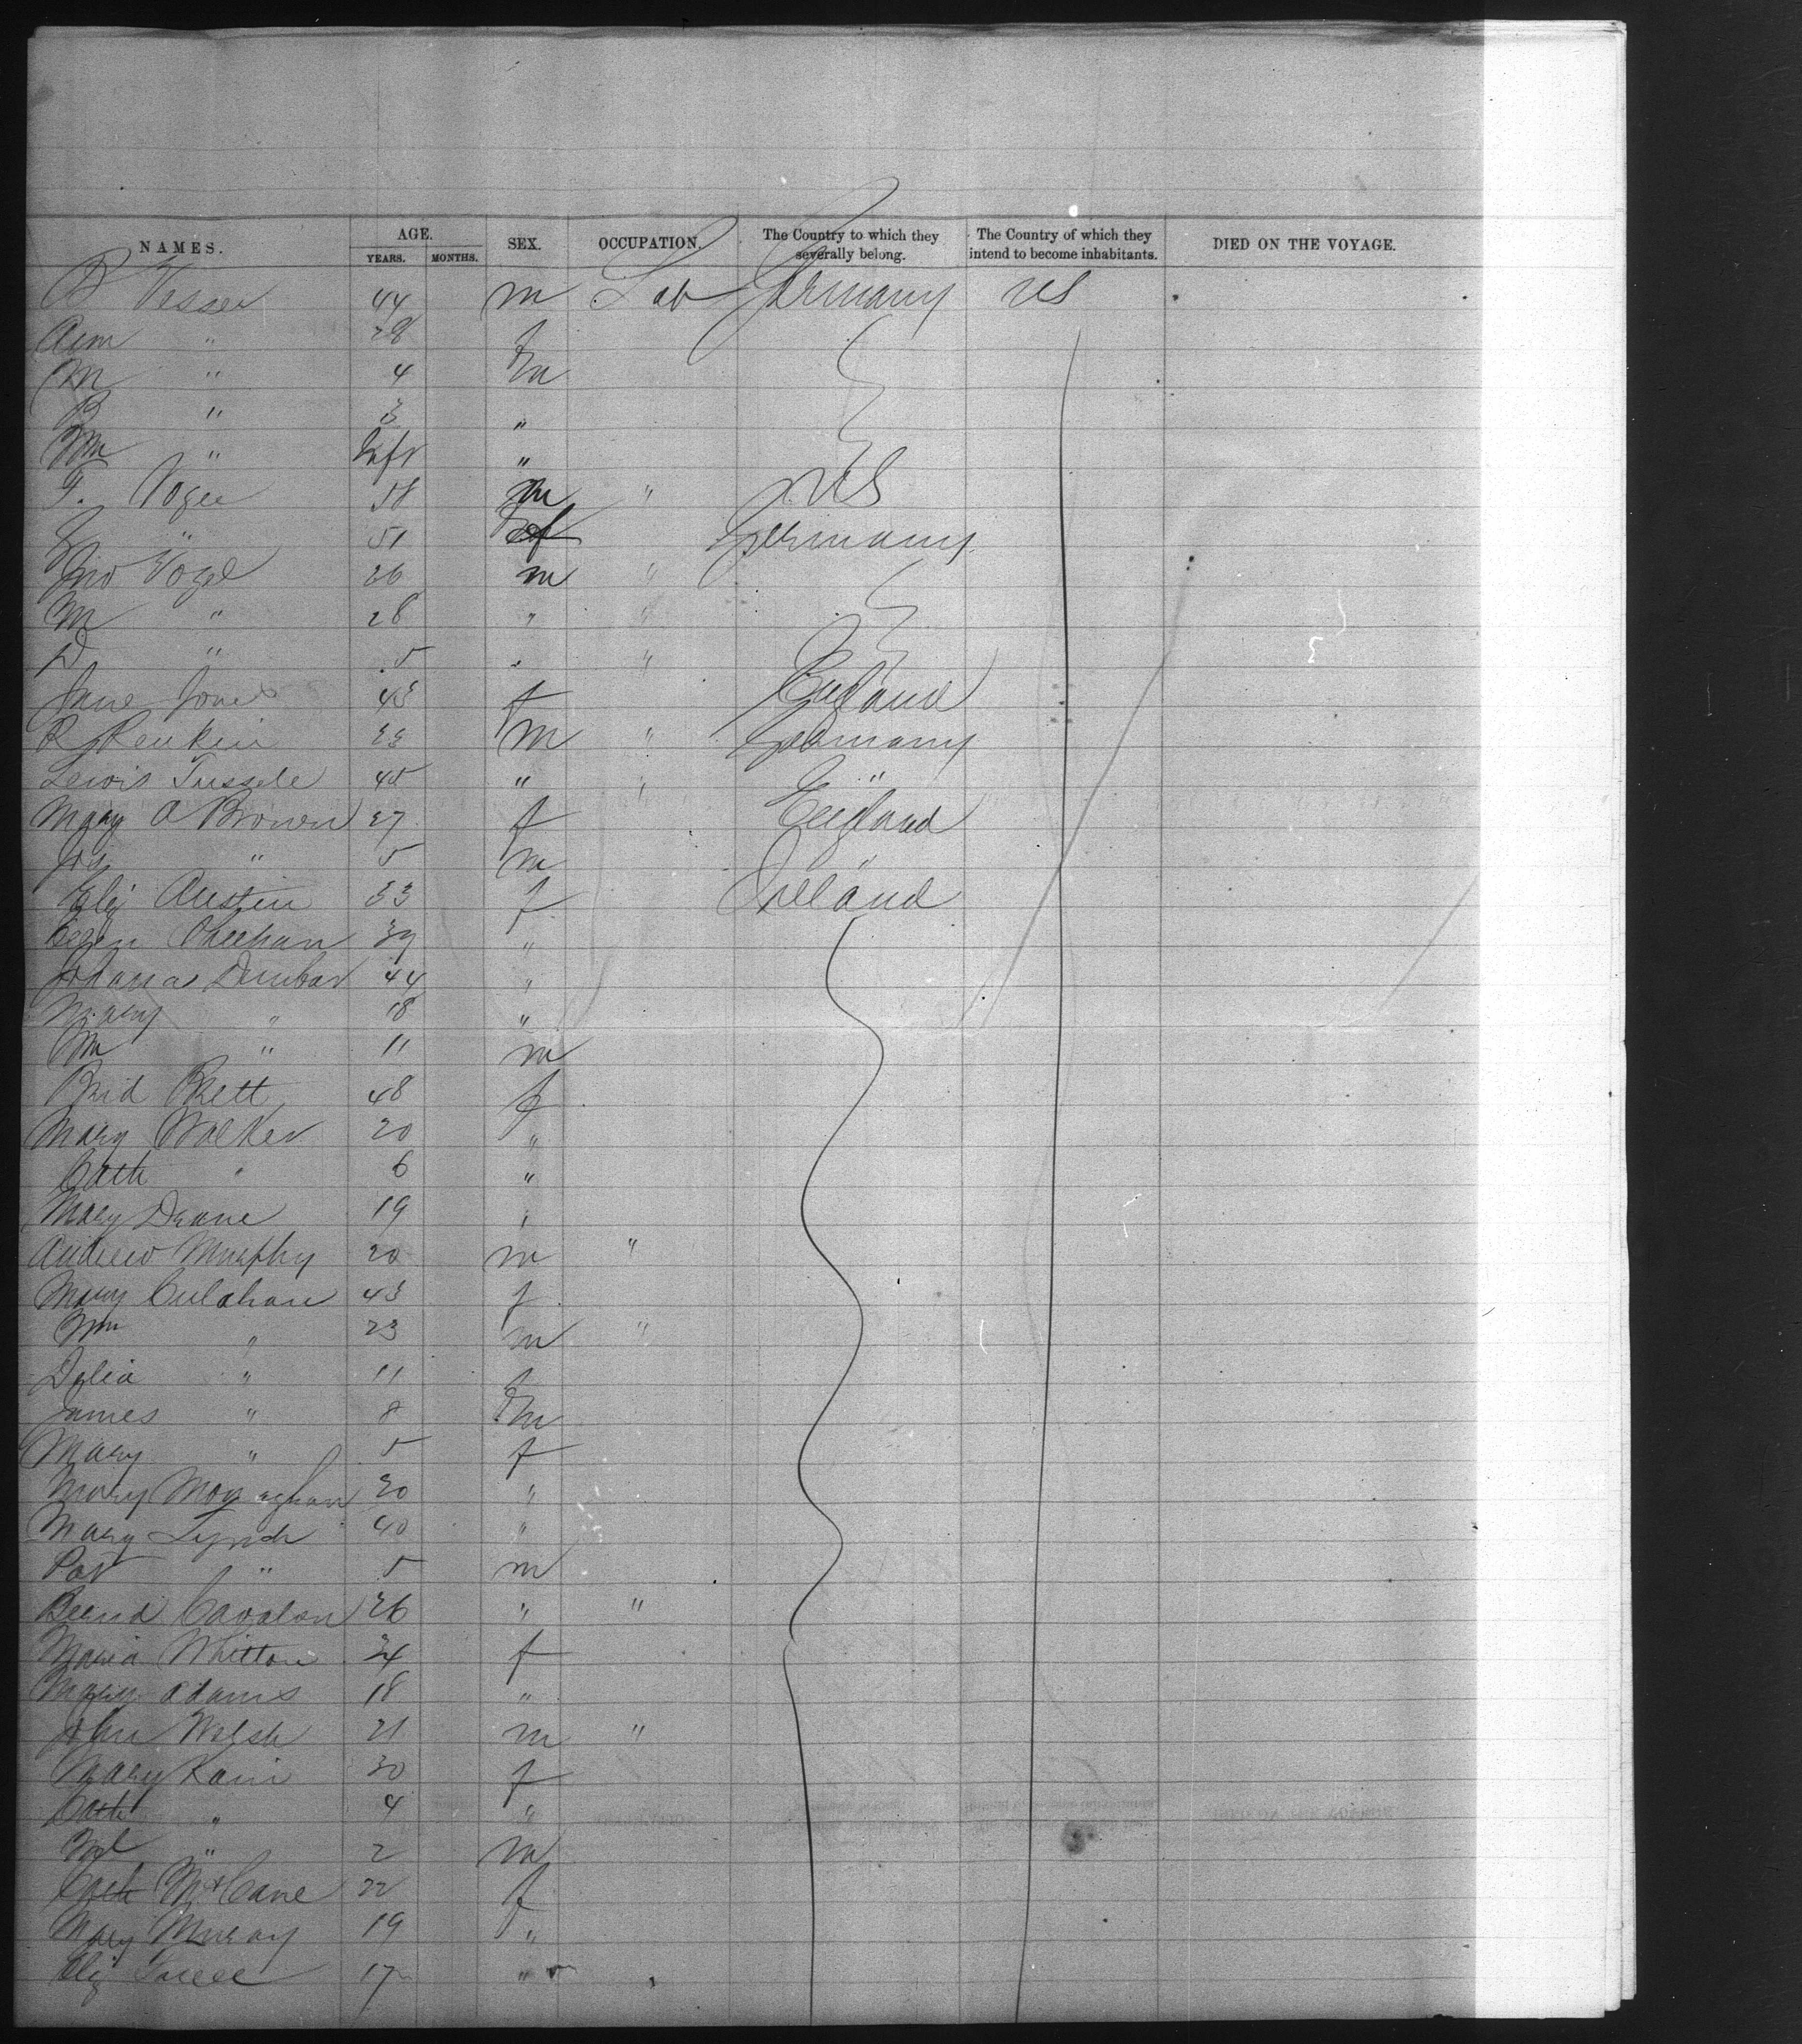 NAMES. AGE. SEX. OCCUPATION. The Country to which they severally belong. The Country of which they intend to become inhabitants. DIED ON THE VOYAGE.
YEARS. MONTHS.
B Vesser 44 m Lab Germany US
" 28 f
M " 4 m
B " 3 "
Wm " Inft "
F. 58 m " US
" 51 f Germany
Jno Vogel 26 m "
M " 28 " "
D " 5 " "
Jane Jones 43 f England
R Renkin 23 m " Germany
Lewis 45 " " "
Mary A Brown 27 f England
Jos " 5 m "
Eliz Austin 33 f Ireland
Sheehan 39 "
Johana Dunbar 44 "
Mary " 18 "
Wm " 11 m
Brid Brett 48 f
Mary Walker 20 "
Cath " 6 "
Mary Deane 19 "
Andrew Murphy 20 m "
Mary Culahan 43 f
Wm " 23 m "
Delia " 11 f
James " 8 m
Mary " 5 f
Mary Monaghan 20 "
Mary Lynch 40 "
Pat " 5 m
Bernd 26 " "
Maria Whitton 34 f
Mary Adams 18 "
John Welsh 21 m "
Mary Kain 30 f
Cath " 4 "
Ml " 2 m
Cath McCane 22 f
Mary Muray 19 "
Eliz 17 "